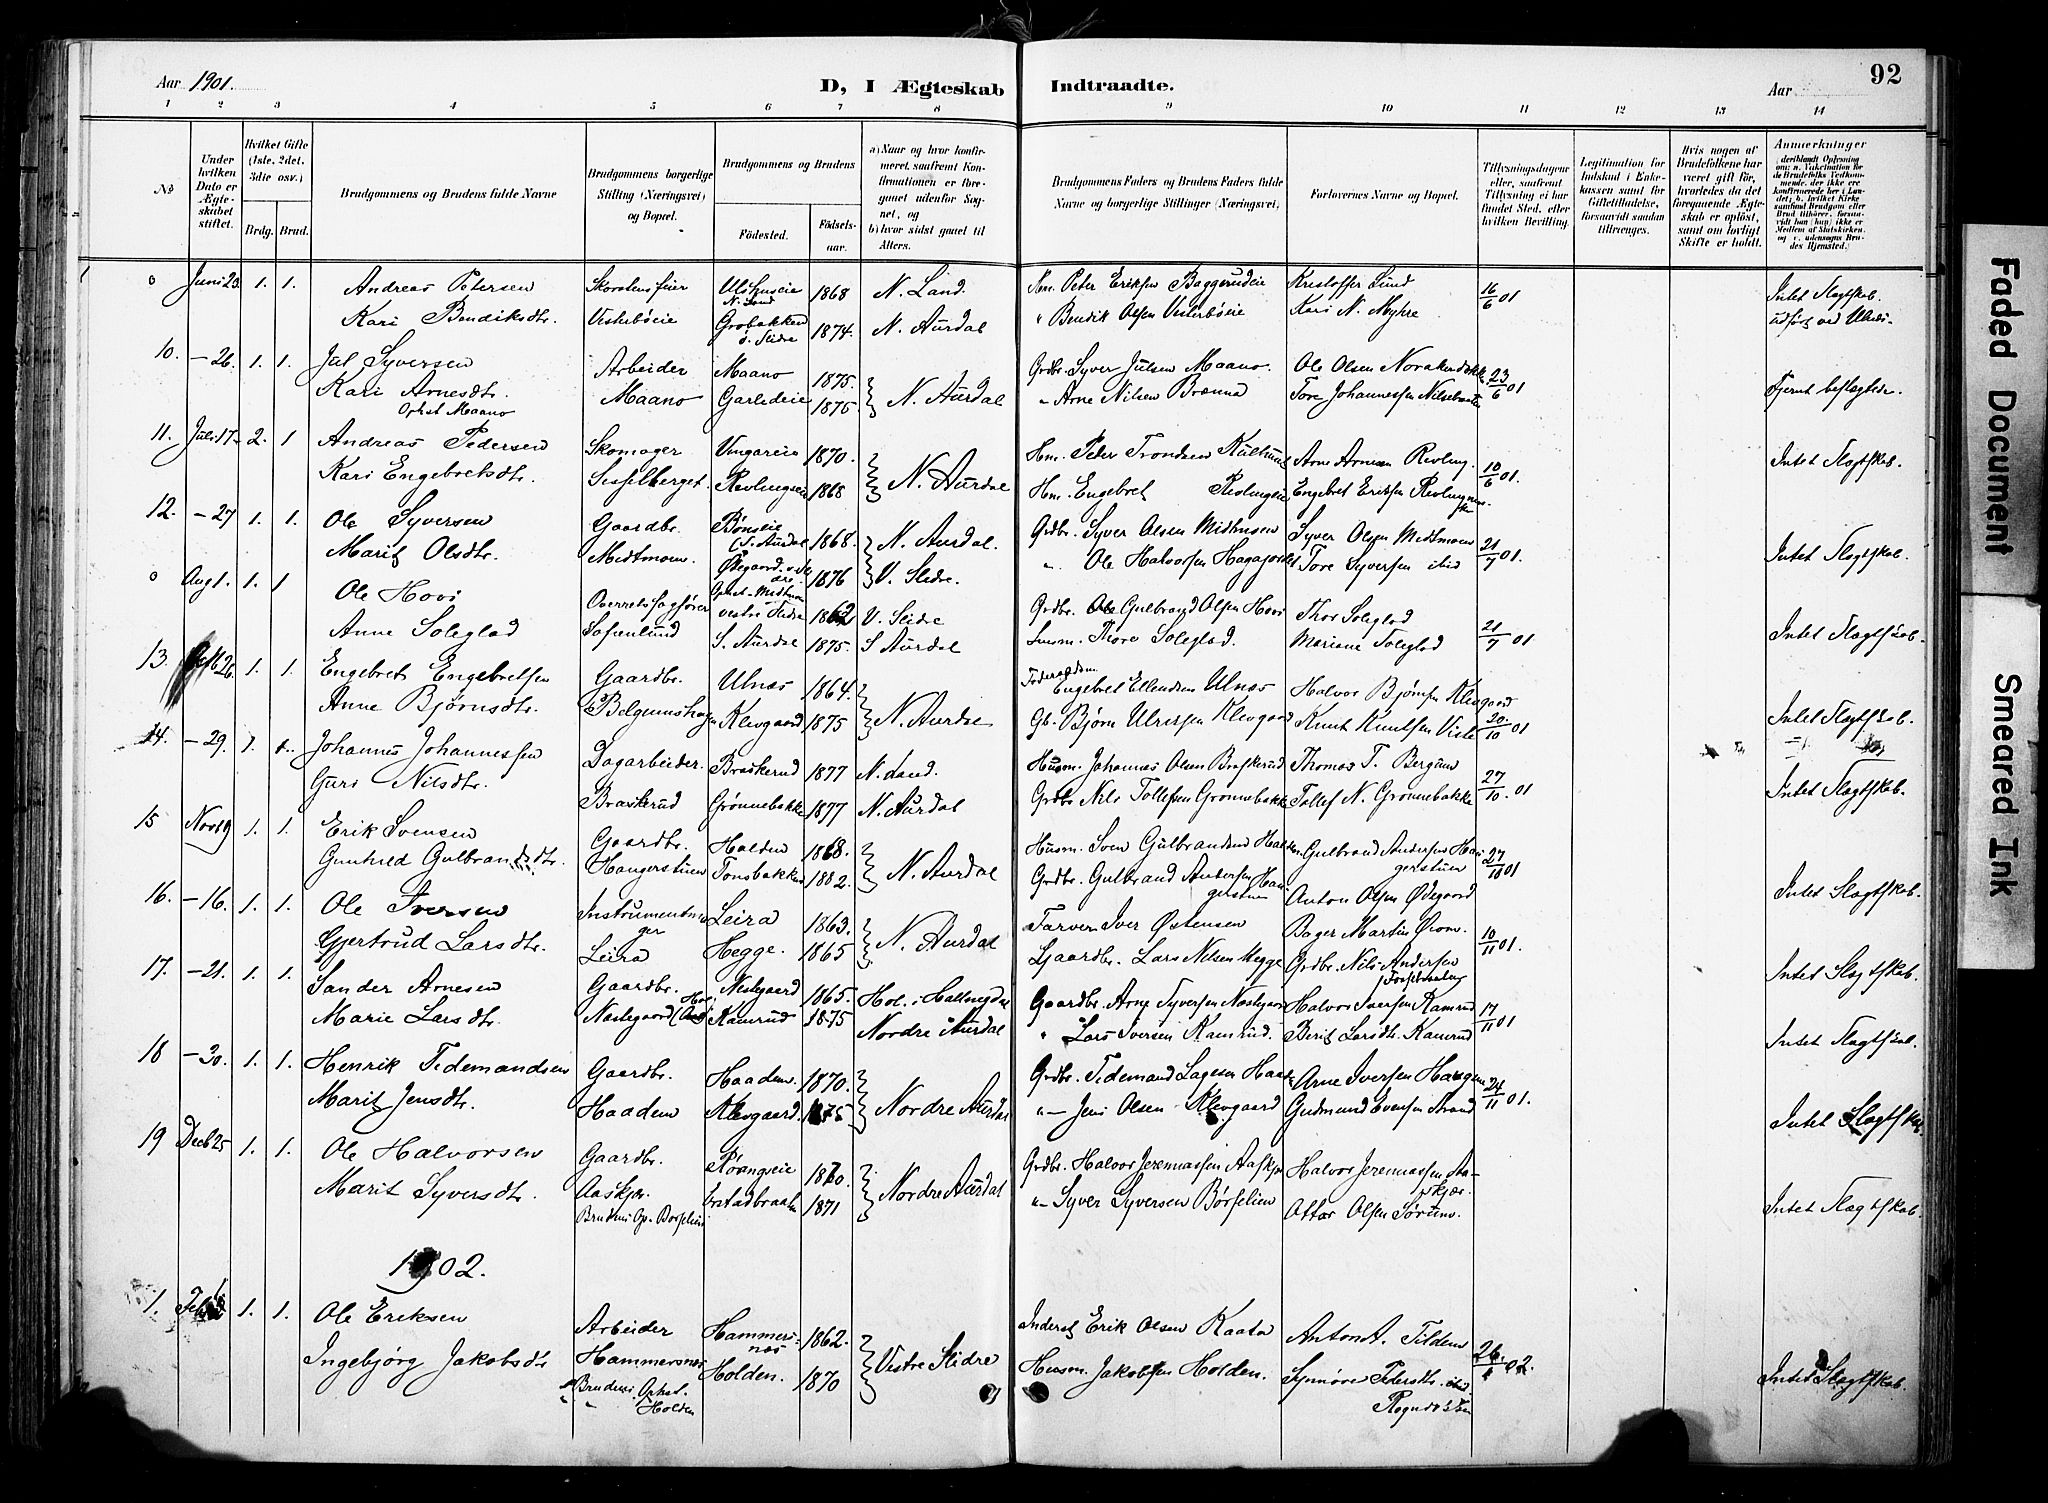 Aar 1901.
D, I Ægteskab Indtraadte.
Aar
92
1 2 3 4 5 6 7 8 9 10 11 12 13 14
No
Under hvilken Dato er Ægteskabet stiftet.
Hvilket Gifte (1ste, 2det, 3die osv.)
Brdg. Brud.
Brudgommens og Brudens fulde Navne
Brudgommens borgerlige Stilling (Næringsvei) og Bopæl.
Brudgommens og Brudens
Fødested. Fødselsaar.
a) Naar og hvor konfirmeret, saafremt Konfirmationen er foregaaet udenfor Sognet, og
b) hvor sidst gaaet til Alters.
Brudgommens Faders og Brudens Faders fulde Navne og borgerlige Stillinger (Næringsvei)
Forlovernes Navne og Bopæl.
Tillysningsdagene eller, saafremt Tillysning ei har fundet Sted, efter hvilken Bevilling.
Legitimation for Indskud i Enkekassen samt for Giftetilladelse, forsaavidt saadan tiltrænges.
Hvis nogen af Brudefolkene har været gift før, hvorledes da det foregaaende Ægteskab er opløst, samt om lovligt Skifte er holdt.
Anmærkninger
(deriblandt Oplysning om: a. Vakcination for de Brudefolks Vedkommende, der ikke ere konfirmerede her i Landet; b. hvilket Kirkesamfund Brudgom eller Brud tilhører, forsaavidt han (hun) ikke er Medlem af Statskirken, og c. udensogns Brudes Hjemsted.)
0 Juni 23. 1. 1. Andreas Petersen Skorstensfeier Ulshuseie N. Land 1868 N. Land. Hm. Peter Eriksen Baggerudeie Kristoffer Lund 16/6 01 Intet Slægtskab.
Kari Bendiksdtr. Vesterbøeie Grobakken Ø. Slidre 1874. N. Aurdal " Bendik Olsen Vesterbøeie Kari N. Myhre
10. -26. 1. 1. Jul Syversen Arbeider Maano 1875. N. Aurdal Grdbr. Syver Julsen Maano. Ole Olsen 23/6 01 Fjernt beslægtede.
Kari Arnesdtr. Maano Garlideie 1875 " Arne Nilsen Brenna Tore Johannessen
Ophst Maano
11. Juli 17. 2. 1 Andreas Pedersen Skomager Ungareie 1870. N. Aurdal Hm. Peder Trondsen Arne Arnesen Revling. 10/6 01. Intet Slægtskab.
Kari Engebretsdtr. Sisselberget. Revlingseie 1868 Hm. Engebret Revlingeie Engebret Eriksen
12. -27 1. 1. Ole Syversen Gaardbr. Bønseie (S. Aurdal 1868. N. Aurdal. Grdbr. Syver Olsen Midtmoen Syver Olsen Midtmoen 21/7 01. Intet Slægtskab.
Marit Olsdtr. Midtmoen. Ødegaard 1876 V. Slidre. " Ole Halvorsen Tore Syversen ibid
Ophst. Midtmoen
0 Aug 1. 1. 1 Ole Hovi Overretssagfører vestre Slidre 1862 V. Slidre Grdbr. Gulbrand Olsen Hovi Thor Soleglad 21/7 01 Intet Slægtskab.
Anne Soleglad Sofienlund S. Aurdal 1875. S Aurdal Thore Soleglad. Mariane Soleglad
13. 26. 1. 1. Engebret Engebretsen Gaardbr. Ulnæs 1864. N. Aurdal Føderaadsm. Engebret Ellendsen Ulnæs Halvor Bjørnsen Klevgaard 20/10 01 Intet Slægtskab.
Anne Bjørnsdtr. Klevgaard 1875 Gb. Bjørn Ulriksen Klevgaard Knut Knutsen
14. -29. 1. 1. Johannes Johannessen Dagarbeider. Braskerud 1877 N. Land. Husm. Johannes Olsen Braskerud Thomas T. Bergum 27/10 01 Intet Slægtskab.
Guri Nilsdtr. Braskerud Grønnebakke 1877 N. Aurdal Grdbr Nils Tollefsen Grønnebakke Tollef N. Grønnebakke
15 Novb 9 1. 1. Erik Svensen Gaardbr. Holden 1868. N. Aurdal Husm. Sven Gulbrandsen Gulbrand Andersen Haugerstuen 27/10 01 Intet Slægtskab.
Gunhild Gulbrandsdtr. Haugerstuen Tonsbakken 1882. Grdbr. Gulbrand Andersen Haugerstuen Anton Olsen Ødegaard
16. -16. 1. 1. Ole Iversen Instrumentmager Leira 1863. N. Aurdal Farver Iver Østensen Bager Martin Øiom. 10/11 01. Intet Slægtskab.
Gjertrud Larsdtr. Leira Hegge. 1865 Gaardbr. Lars Nilsen Hegge Grdbr. Nils Andersen
17. -21. 1. 1. Sander Arnesen Gaardbr. Neslegaard 1865. Hol i Hallingdal Gaardbr. Arne Syversen Neslegaard Halvor Iversen Kamrud 17/11 01 Intet Slægtskab.
Marie Larsdtr. Neslegaard Kamrud 1875 Nordre Aurdal " Lars Iversen Kamrud. Berit Larsdtr. Kamrud
18 -30. 1. 1. Henrik Tidemandsen Gaardbr. Haaden. 1870. Nordre Aurdal Grdbr. Tidemand Lagesen Arne Iversen 24/11 01. Intet Slægtskab
Marit Jensdtr. Haaden Klevgaard. 1875 "- Jens Olsen Klevgaard Gudmund Evensen Strand
19 Decb 25 1. 1. Ole Halvorsen Gaardbr. 1870. Nordre Aurdal Grdbr. Halvor Jeremiassen Aaskjær Halvor Jeremiassen Aaskjær. Intet Slægtskab.
Marit Syversdtr. Aaskjær. 1871 "- Syver Syversen Børselien Ottar Olsen Sørum.
Brudens Op. Børselien
1902.
1. Feb 1. 1. Ole Eriksen Arbeider Hammersnæs 1862. Vestre Slidre Inderst Erik Olsen Kaata Anton A. Tildem 26/1 02. Intet Slægtskab.
Ingebjørg Jakobsdtr Hammersnæs Holden. 1870 Husm. Jakobsen Holden. Synnøve Pedersdtr. ibid.
Brudens Ophst. Holden
Faded Document
Smeared Ink